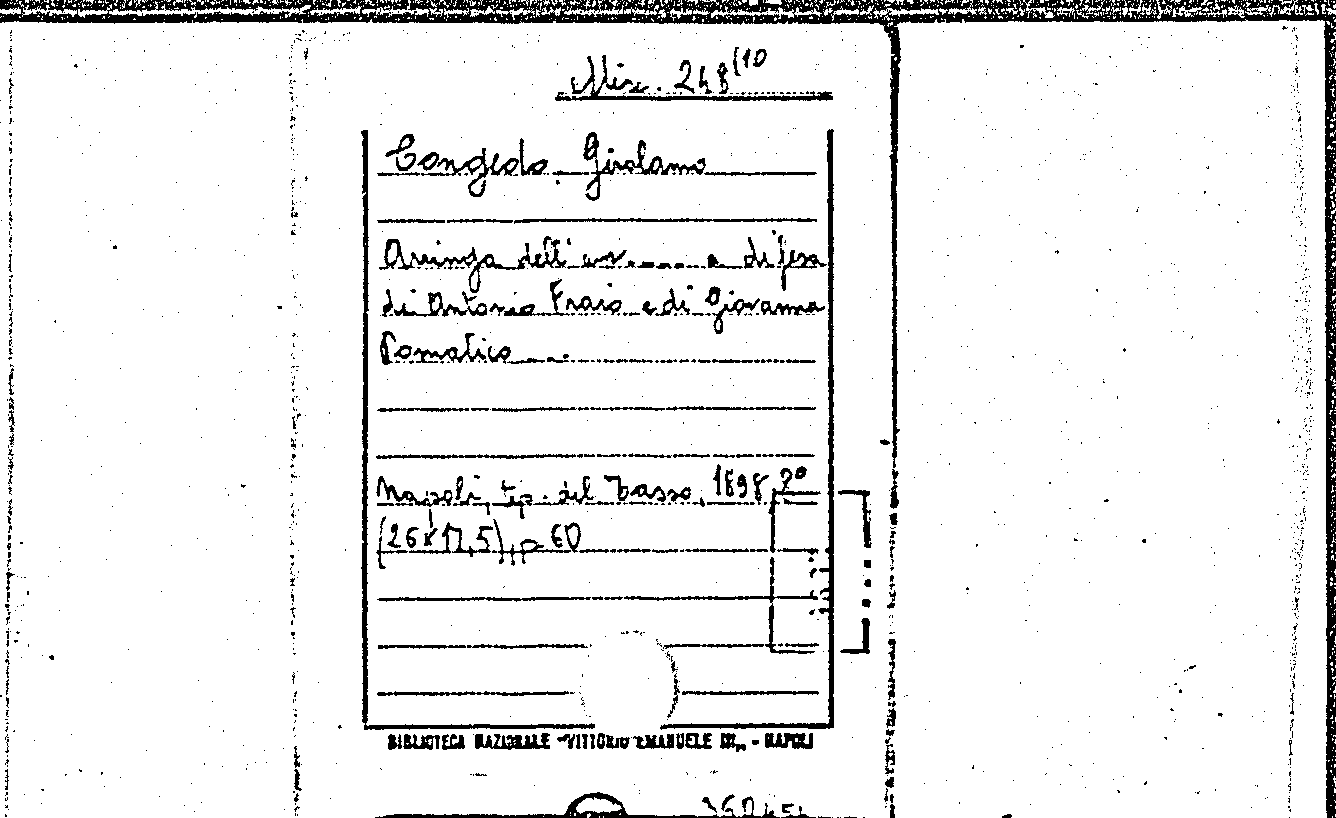 Misc. 248(10
Congedo Girolamo
Arringa dell'avv..... a difesa
di Antonio Fraio e di Giovanna
Pomatico...
Napoli, tip. del Tasso, 1898, 8°
(26x17,5), p. 60
BIBLIOTECA NAZIONALE "VITTORIO EMANUELE III" - NAPOLI